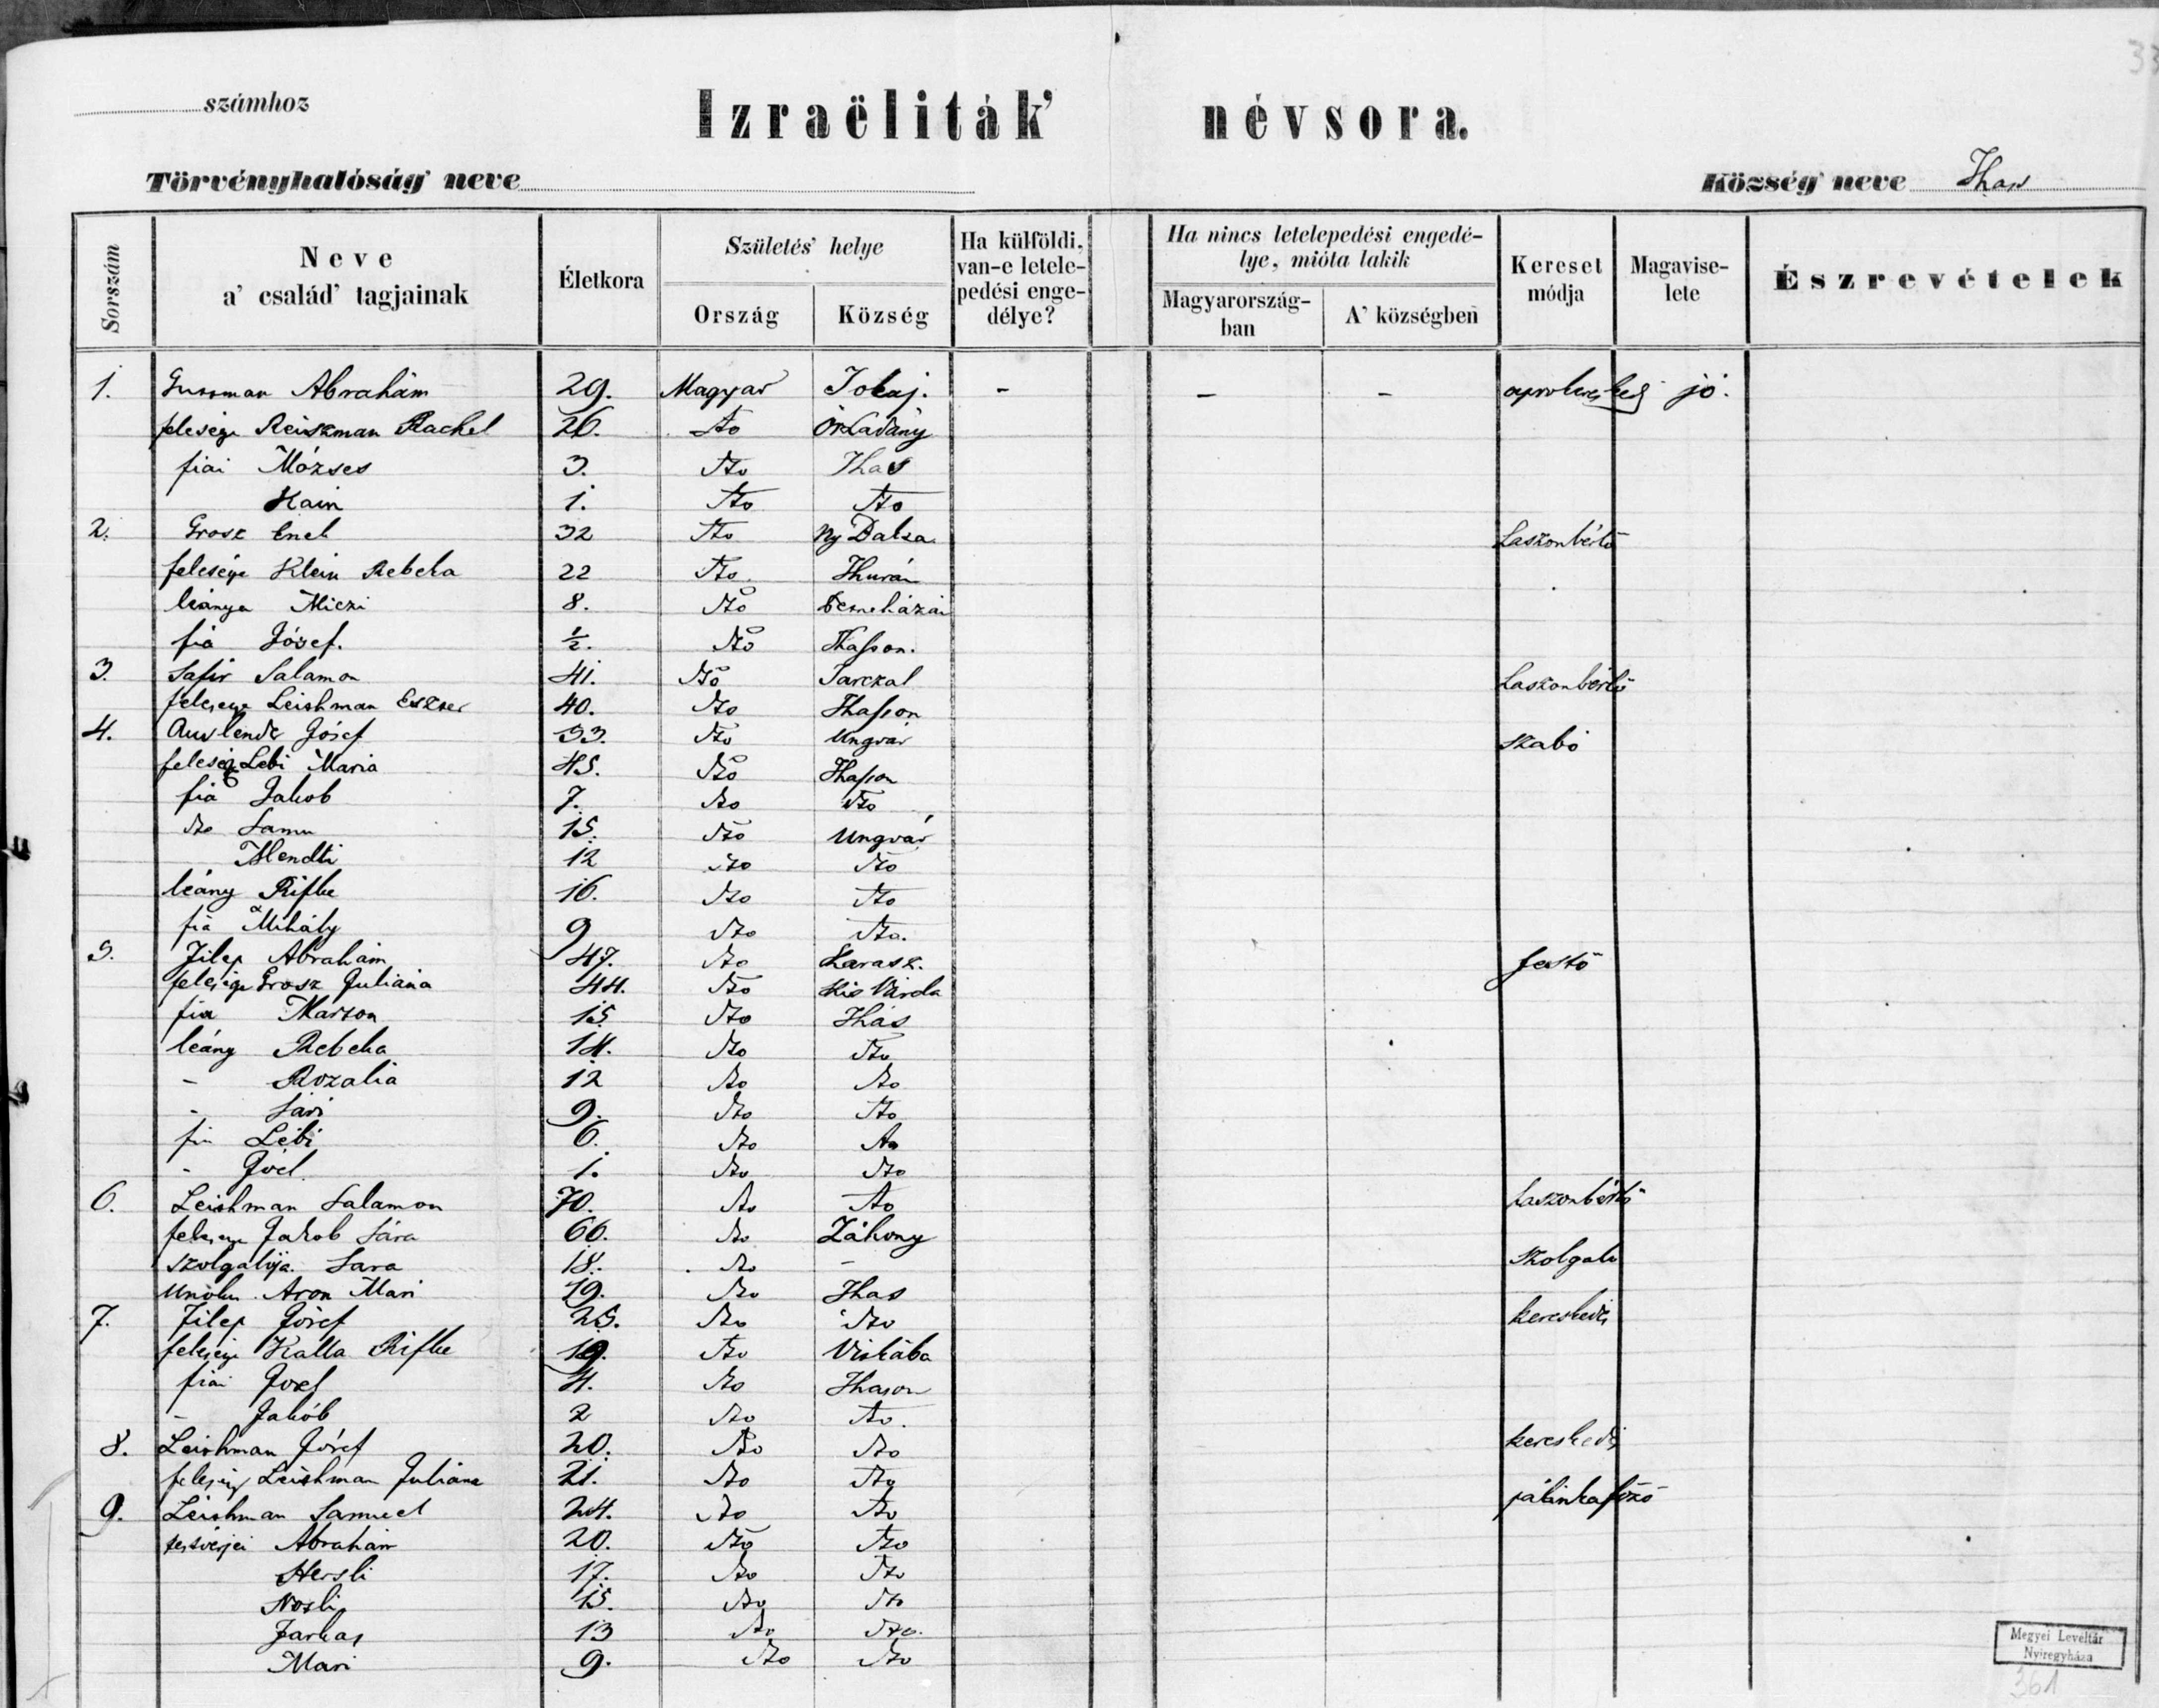 33
számhoz
Izraëliták' névsora.
Törvényhatóság' neve Község' neve Thas
Sorszám Neve a' család' tagjainak Életkora Születés' helye Ország Község Ha külföldi, van-e letelepedési engedélye? Ha nincs letelepedési engedélye, mióta lakik Magyarországban A' községben Kereset módja Magaviselete Észrevételek
1. Gussman Abrahám 29. Magyar Tokaj. - - - jó.
felesége Reiszman Rachel 26. dto Őr Ladány
fiai Mózses 3. dto Thas
Hain 1. dto dto
2. Grosz 32 dto Ny Dalza Haszonbérlő
felesége Klein Rebeka 22 dto Thurán
leánya Miczi 8. dto
fia Jósef. ½. dto Thasson.
3. Safir Salamon 41. dto Tarczal Haszonbérlő
felesege Leishman Eszter 40. dto Thasson
4. Jósef 33. dto Ungvár szabó
feleség Lebi Maria 45. dto Thasson
fia Jakob 7. dto dto
dto Samu 15. dto Ungvár
Mendli 12 dto dto
leány Rifke 16. dto dto
fia Mihály 9 dto dto.
5. Filep Abrahám 47. dto Karasz. festő
felesége Grosz Juliána 44. dto Kis Várda
fia Marton 15 dto Thás
leány Rebeka 14. dto dto
- Rozalia 12 dto dto
- Sári 9. dto dto
fia Lébi 6. dto dto
- Joel 1. dto dto
6. Leishman Salamon 70. dto dto haszonbérlő
felesege Jakob Sára 66. dto Záhony
szolgalója. Sara 18. dto - szolgaló
Aron Mari 19. dto Thas
7. Filep Jósef 25. dto dto kereskedő
felesege Kalla Rifke 19. dto Viskába
fiai Josef 4. dto Thason
- Jakób 2 dto dto.
8. Leishman Jósef 20. dto dto kereskedő
feleség Leishman Juliána 21. dto dto
9. Leishman Samuel 24. dto dto pálinkafőző
testvérjei Abrahám 20. dto dto
Hersli 17. dto dto
Nosli 15. dto dto
Farkas 13 dto dto.
Mari 9. dto dto
Megyei Levéltár
Nyíregyháza
361